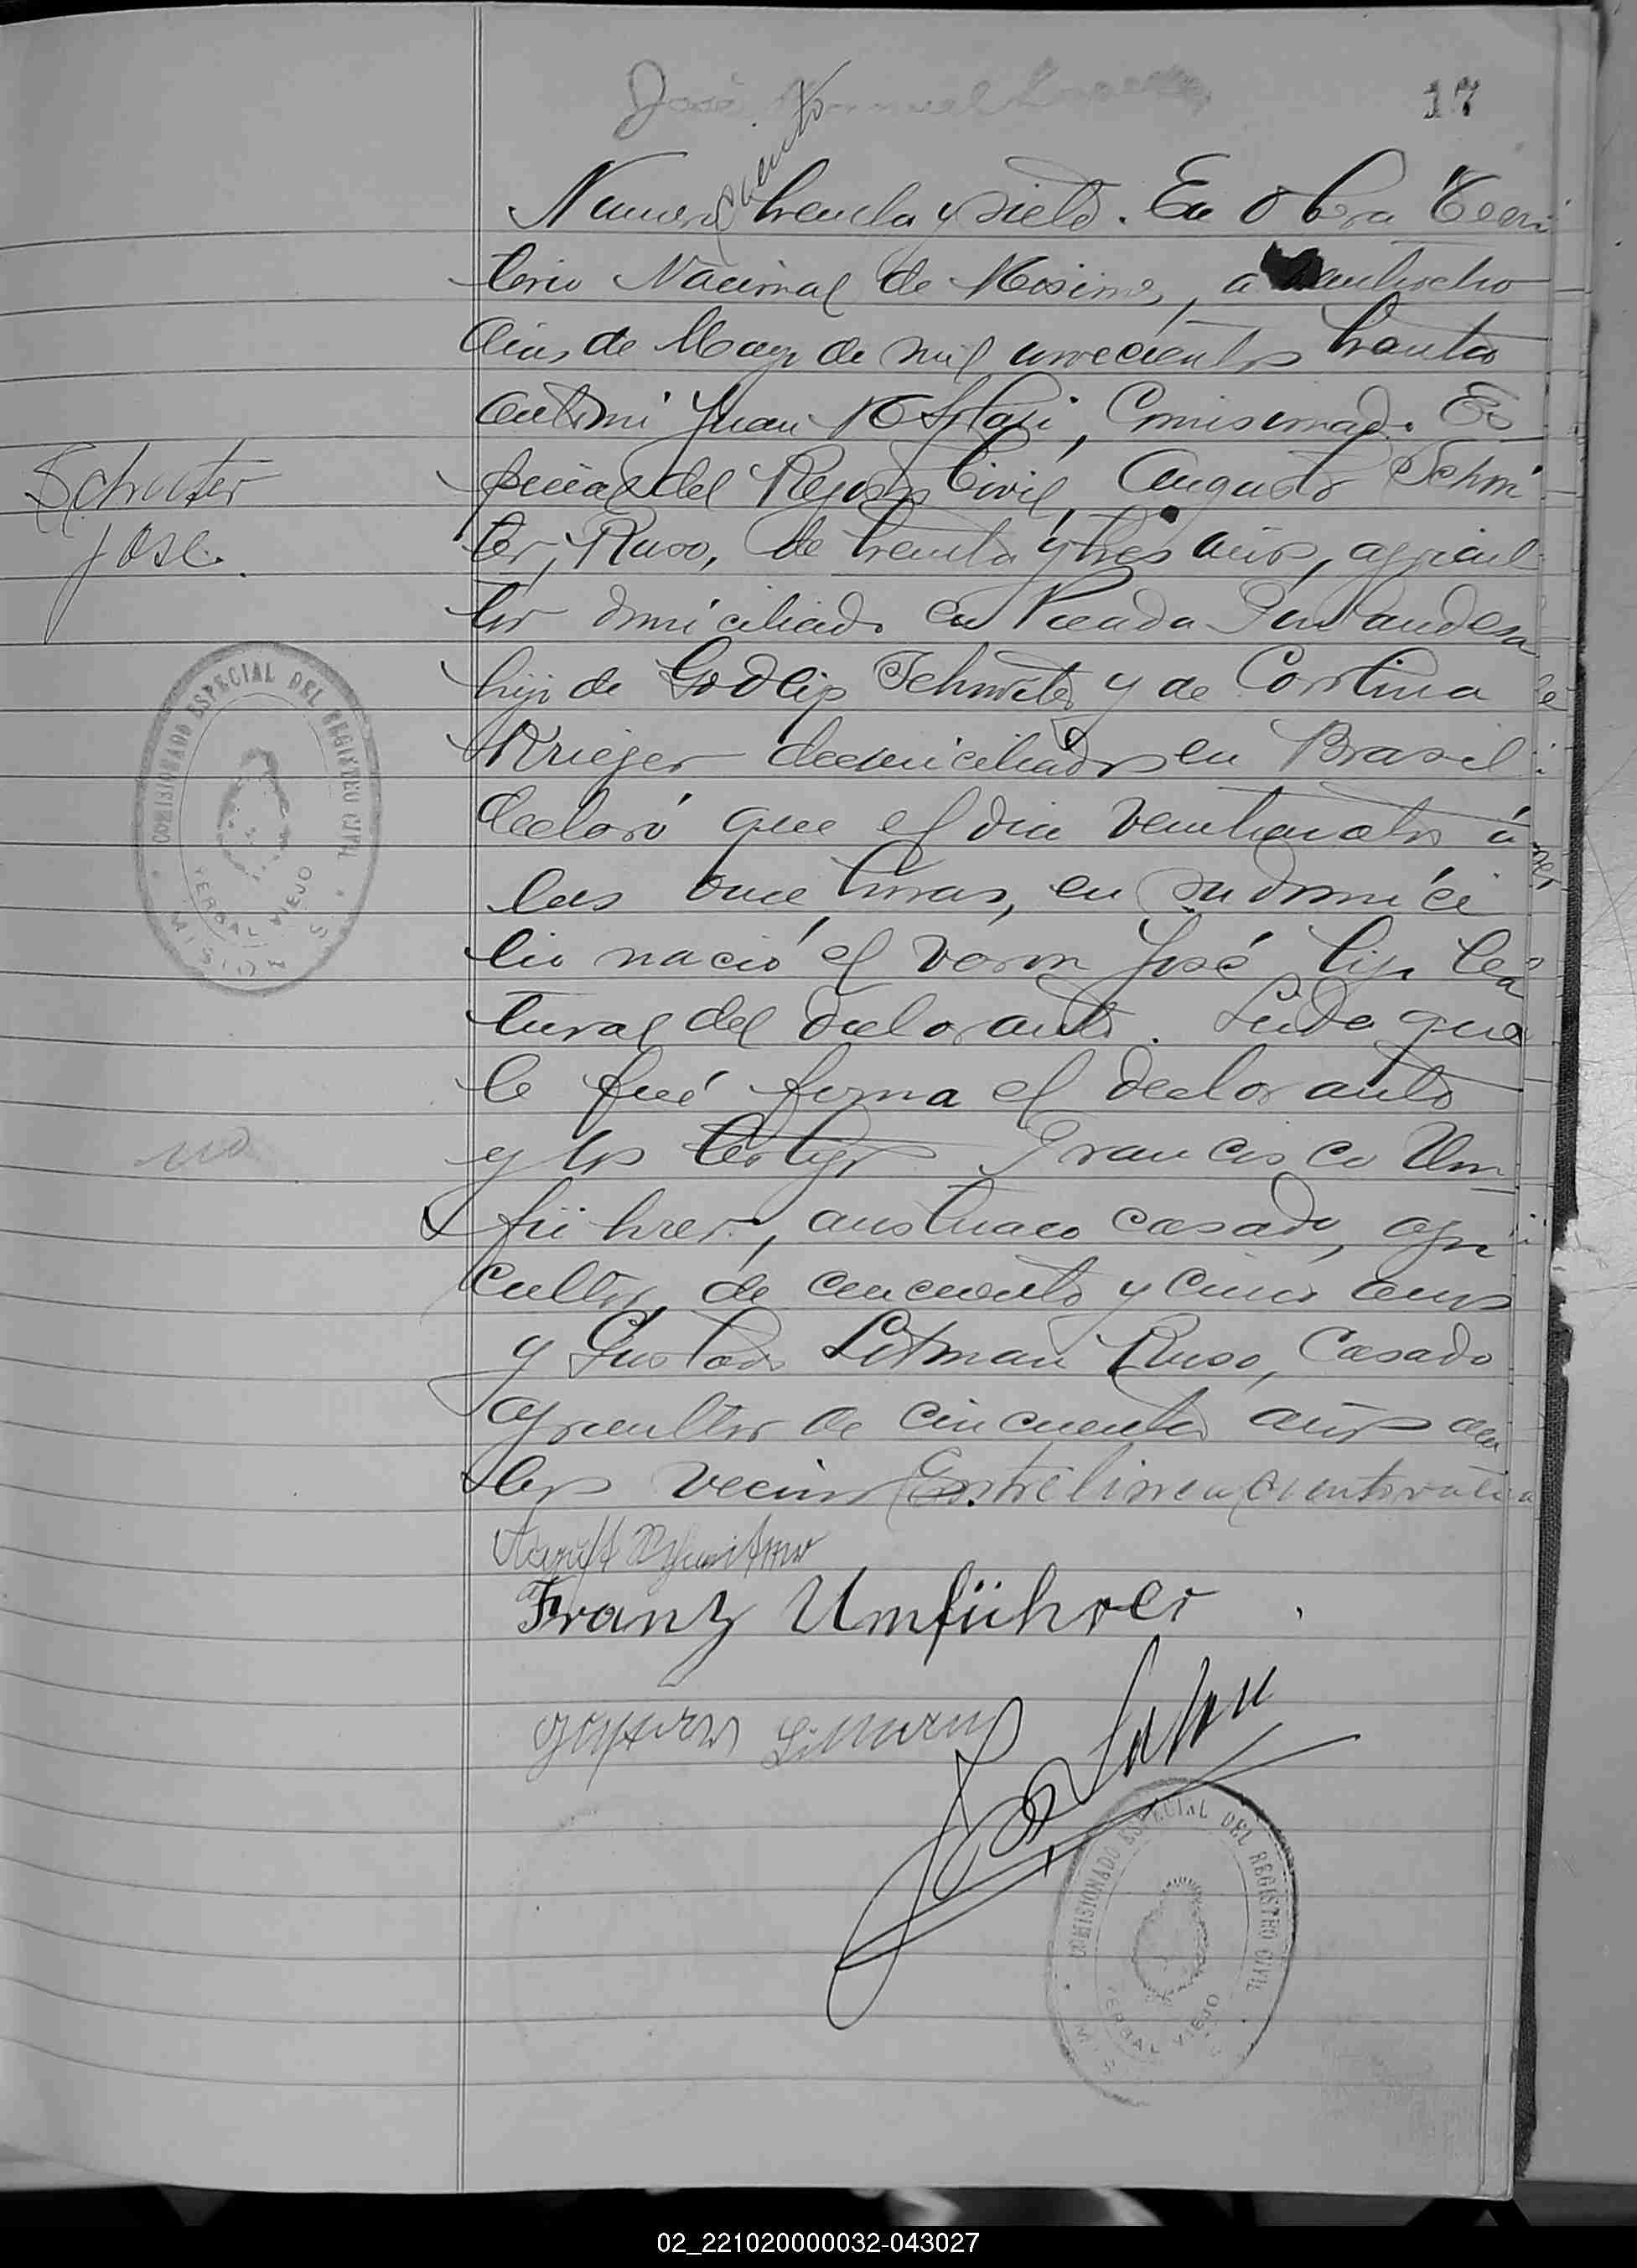 José Manuel
17
ciento
Numero treinta y siete. En Obera Terri
torio Nacional de Misiones, a veintiocho
dias de Mayo de mil novecientos treinta
ante mi Juan Comisionado Es
pecial del Registro Civil, Augusto Schmi
ter, Ruso, de treinta y tres años, agricul
tor domiciliado en Picada Finlandesa
hijo de Godlip Schmiter y de Cortina
Krieger domiciliados en Brasil
declaró que el dia veinticuatro á
las once horas, en su domici
lio nació el varon José hijo na
tural del declarante. Leida que
le fué firma el declarante
y los testigos Francisco Um
führer, austriaco casado, agri
cultor, de cincuenta y cinco años
y Gustavo Litman Ruso, Casado
agricultor de cincuenta años am
bos vecinos Entrelinea ciento vale
Schmiter
José.
COMISIONADO ESPECIAL DEL REGISTRO CIVIL
YERBAL VIEJO
MISIONES
no
August
Franz Umführer
Litmann
COMISIONADO ESPECIAL DEL REGISTRO CIVIL
YERBAL VIEJO
02_221020000032-043027